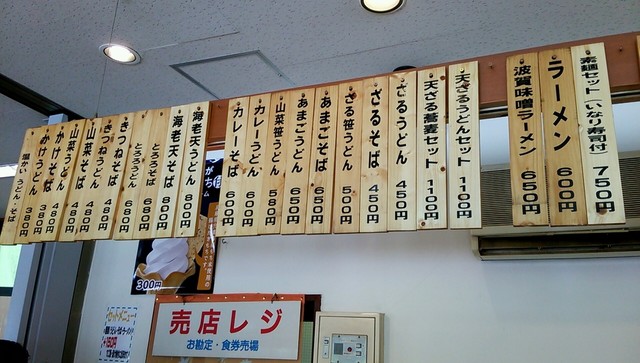 素麺セット(いなり寿司付) 750円
ラーメン 600円
波賀味噌ラーメン 650円
天ざるうどんセット 1100円
天ざる蕎麦セット 1100円
ざるうどん 450円
ざるそば 450円
ざる笹うどん 500円
あまごそば 650円
あまごうどん 650円
山菜笹うどん 580円
カレーうどん 600円
カレーそば 600円
海老天うどん 800円
海老天そば 800円
とろろそば 680円
とろろうどん 680円
きつねそば 480円
きつねうどん 480円
山菜そば 480円
山菜うどん 480円
かけそば 380円
かけうどん 380円
温かい うどん・そば 380円
300円
売店レジ
お勘定・食券売場
セットメニュー